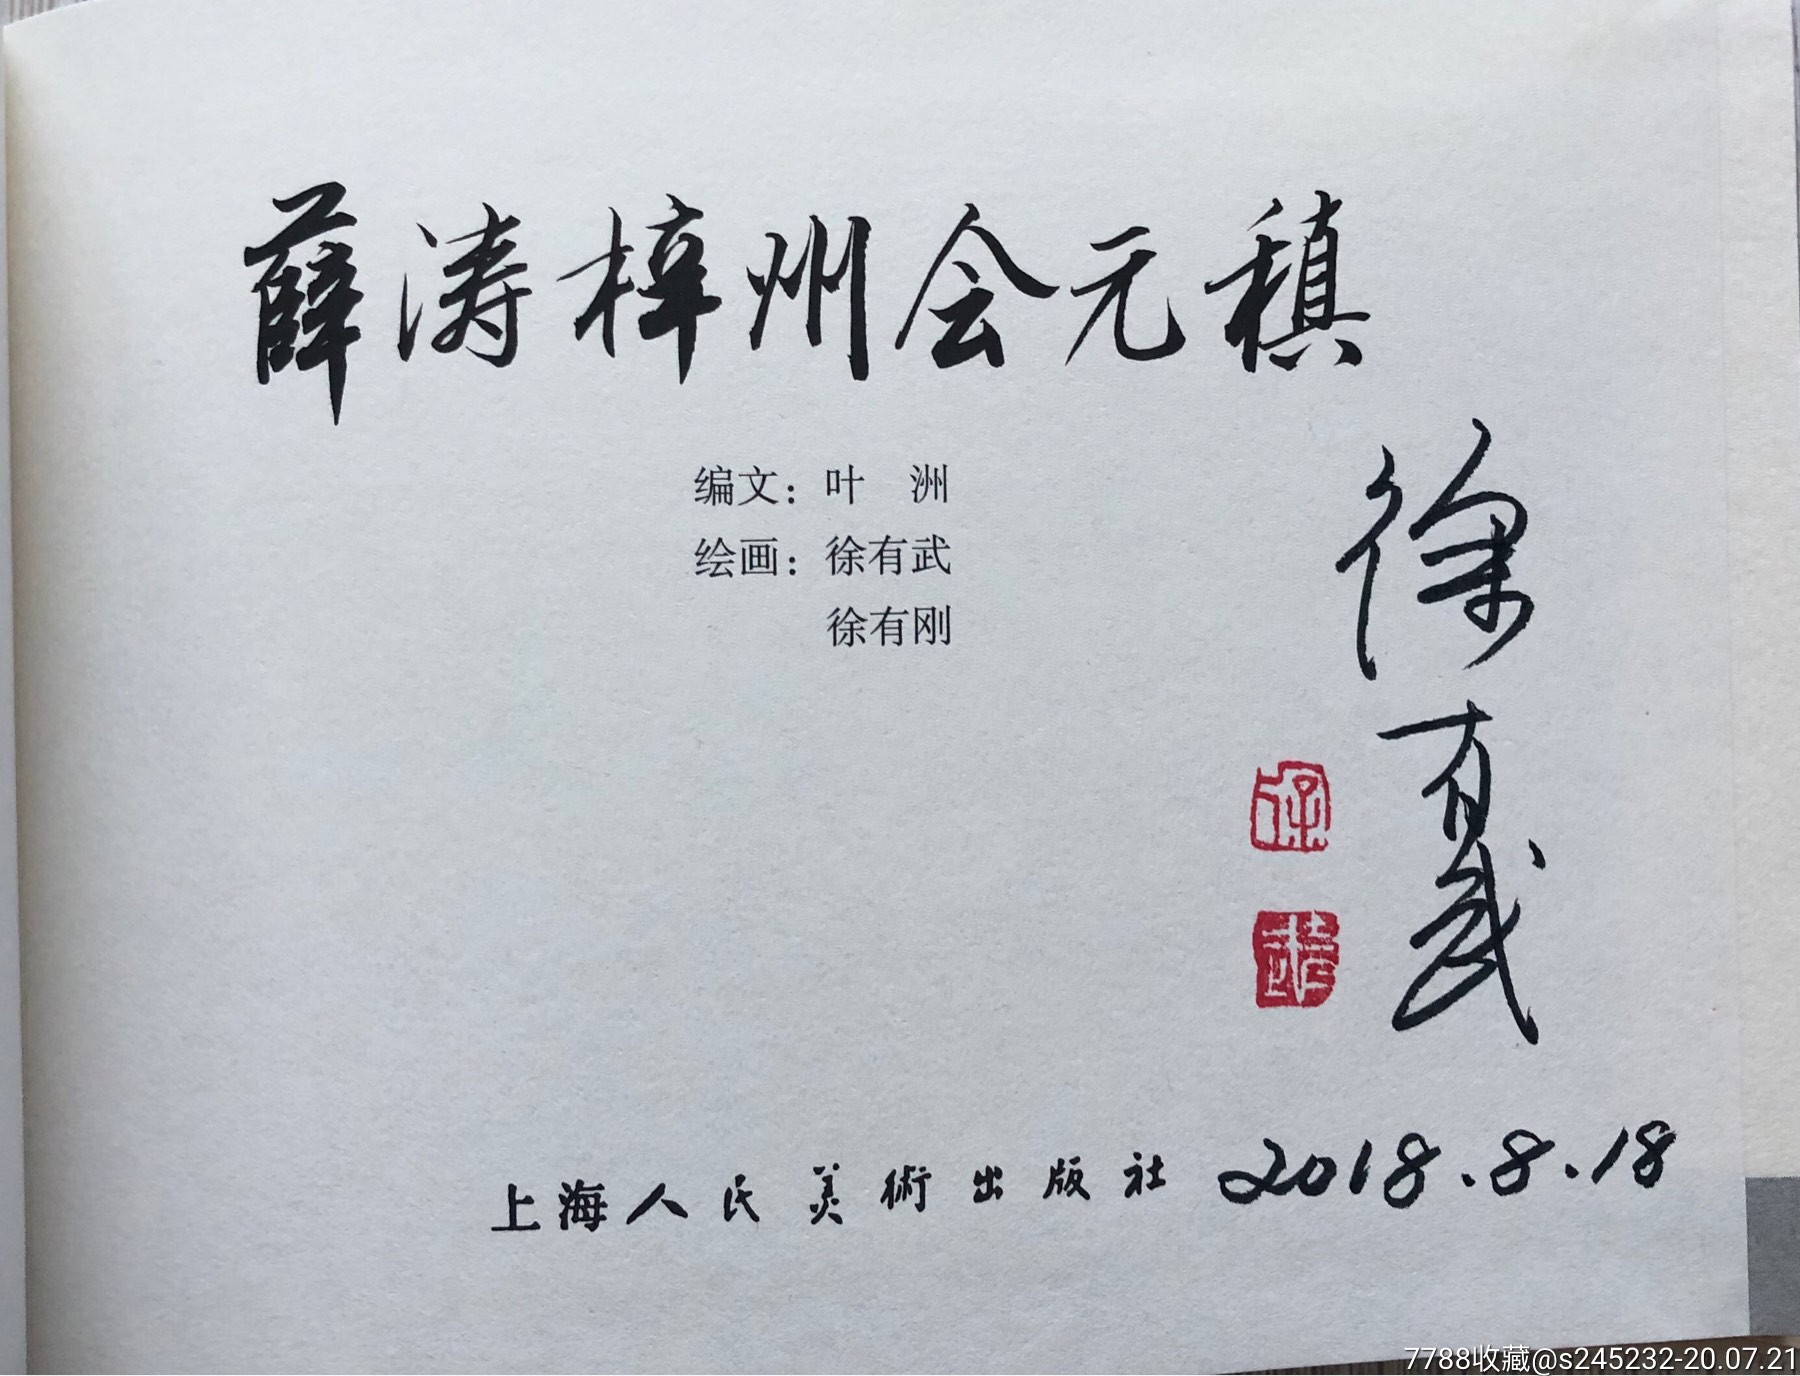 薛涛梓州会元稹
编文：叶　洲
绘画：徐有武
徐有刚
徐有武
徐
上海人民美術出版社
2018.8.18
7788收藏@s245232-20.07.21